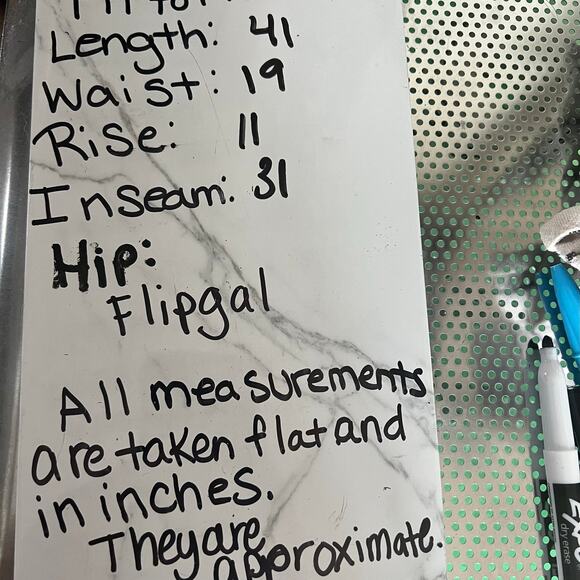 Length: 41
Waist: 19
Rise: 11
Inseam: 31
Hip:
Flipgal
All measurements
are taken flat and
in inches.
They are
approximate.
dry erase